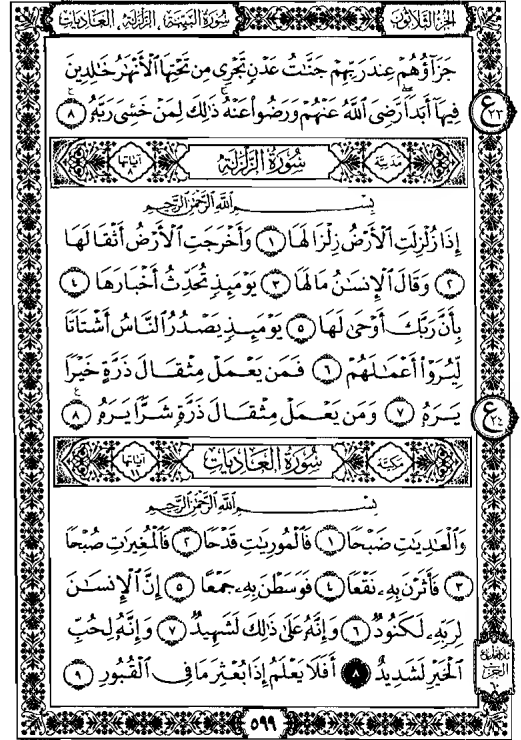 الجزء الثلاثون سورة البينة، الزلزلة، العاديات
جَزَآؤُهُمْ عِندَ رَبِّهِمْ جَنَّٰتُ عَدْنٍ تَجْرِى مِن تَحْتِهَا ٱلْأَنْهَٰرُ خَٰلِدِينَ
فِيهَآ أَبَدًا رَّضِىَ ٱللَّهُ عَنْهُمْ وَرَضُوا۟ عَنْهُ ذَٰلِكَ لِمَنْ خَشِىَ رَبَّهُۥ ٨
ع ٢٣
مدنية سُورَةُ الزَّلْزَلَةِ آياتها ٨
بِسْمِ ٱللَّهِ ٱلرَّحْمَٰنِ ٱلرَّحِيمِ
إِذَا زُلْزِلَتِ ٱلْأَرْضُ زِلْزَالَهَا ١ وَأَخْرَجَتِ ٱلْأَرْضُ أَثْقَالَهَا
٢ وَقَالَ ٱلْإِنسَٰنُ مَا لَهَا ٣ يَوْمَئِذٍ تُحَدِّثُ أَخْبَارَهَا ٤
بِأَنَّ رَبَّكَ أَوْحَىٰ لَهَا ٥ يَوْمَئِذٍ يَصْدُرُ ٱلنَّاسُ أَشْتَاتًا
لِّيُرَوْا۟ أَعْمَٰلَهُمْ ٦ فَمَن يَعْمَلْ مِثْقَالَ ذَرَّةٍ خَيْرًا
يَرَهُۥ ٧ وَمَن يَعْمَلْ مِثْقَالَ ذَرَّةٍ شَرًّا يَرَهُۥ ٨
ع ٢٤
مكية سُورَةُ العَادِيَاتِ آياتها ١١
بِسْمِ ٱللَّهِ ٱلرَّحْمَٰنِ ٱلرَّحِيمِ
وَٱلْعَٰدِيَٰتِ ضَبْحًا ١ فَٱلْمُورِيَٰتِ قَدْحًا ٢ فَٱلْمُغِيرَٰتِ صُبْحًا
٣ فَأَثَرْنَ بِهِۦ نَقْعًا ٤ فَوَسَطْنَ بِهِۦ جَمْعًا ٥ إِنَّ ٱلْإِنسَٰنَ
لِرَبِّهِۦ لَكَنُودٌ ٦ وَإِنَّهُۥ عَلَىٰ ذَٰلِكَ لَشَهِيدٌ ٧ وَإِنَّهُۥ لِحُبِّ
ٱلْخَيْرِ لَشَدِيدٌ ٨ أَفَلَا يَعْلَمُ إِذَا بُعْثِرَ مَا فِى ٱلْقُبُورِ ٩
٥٩٩